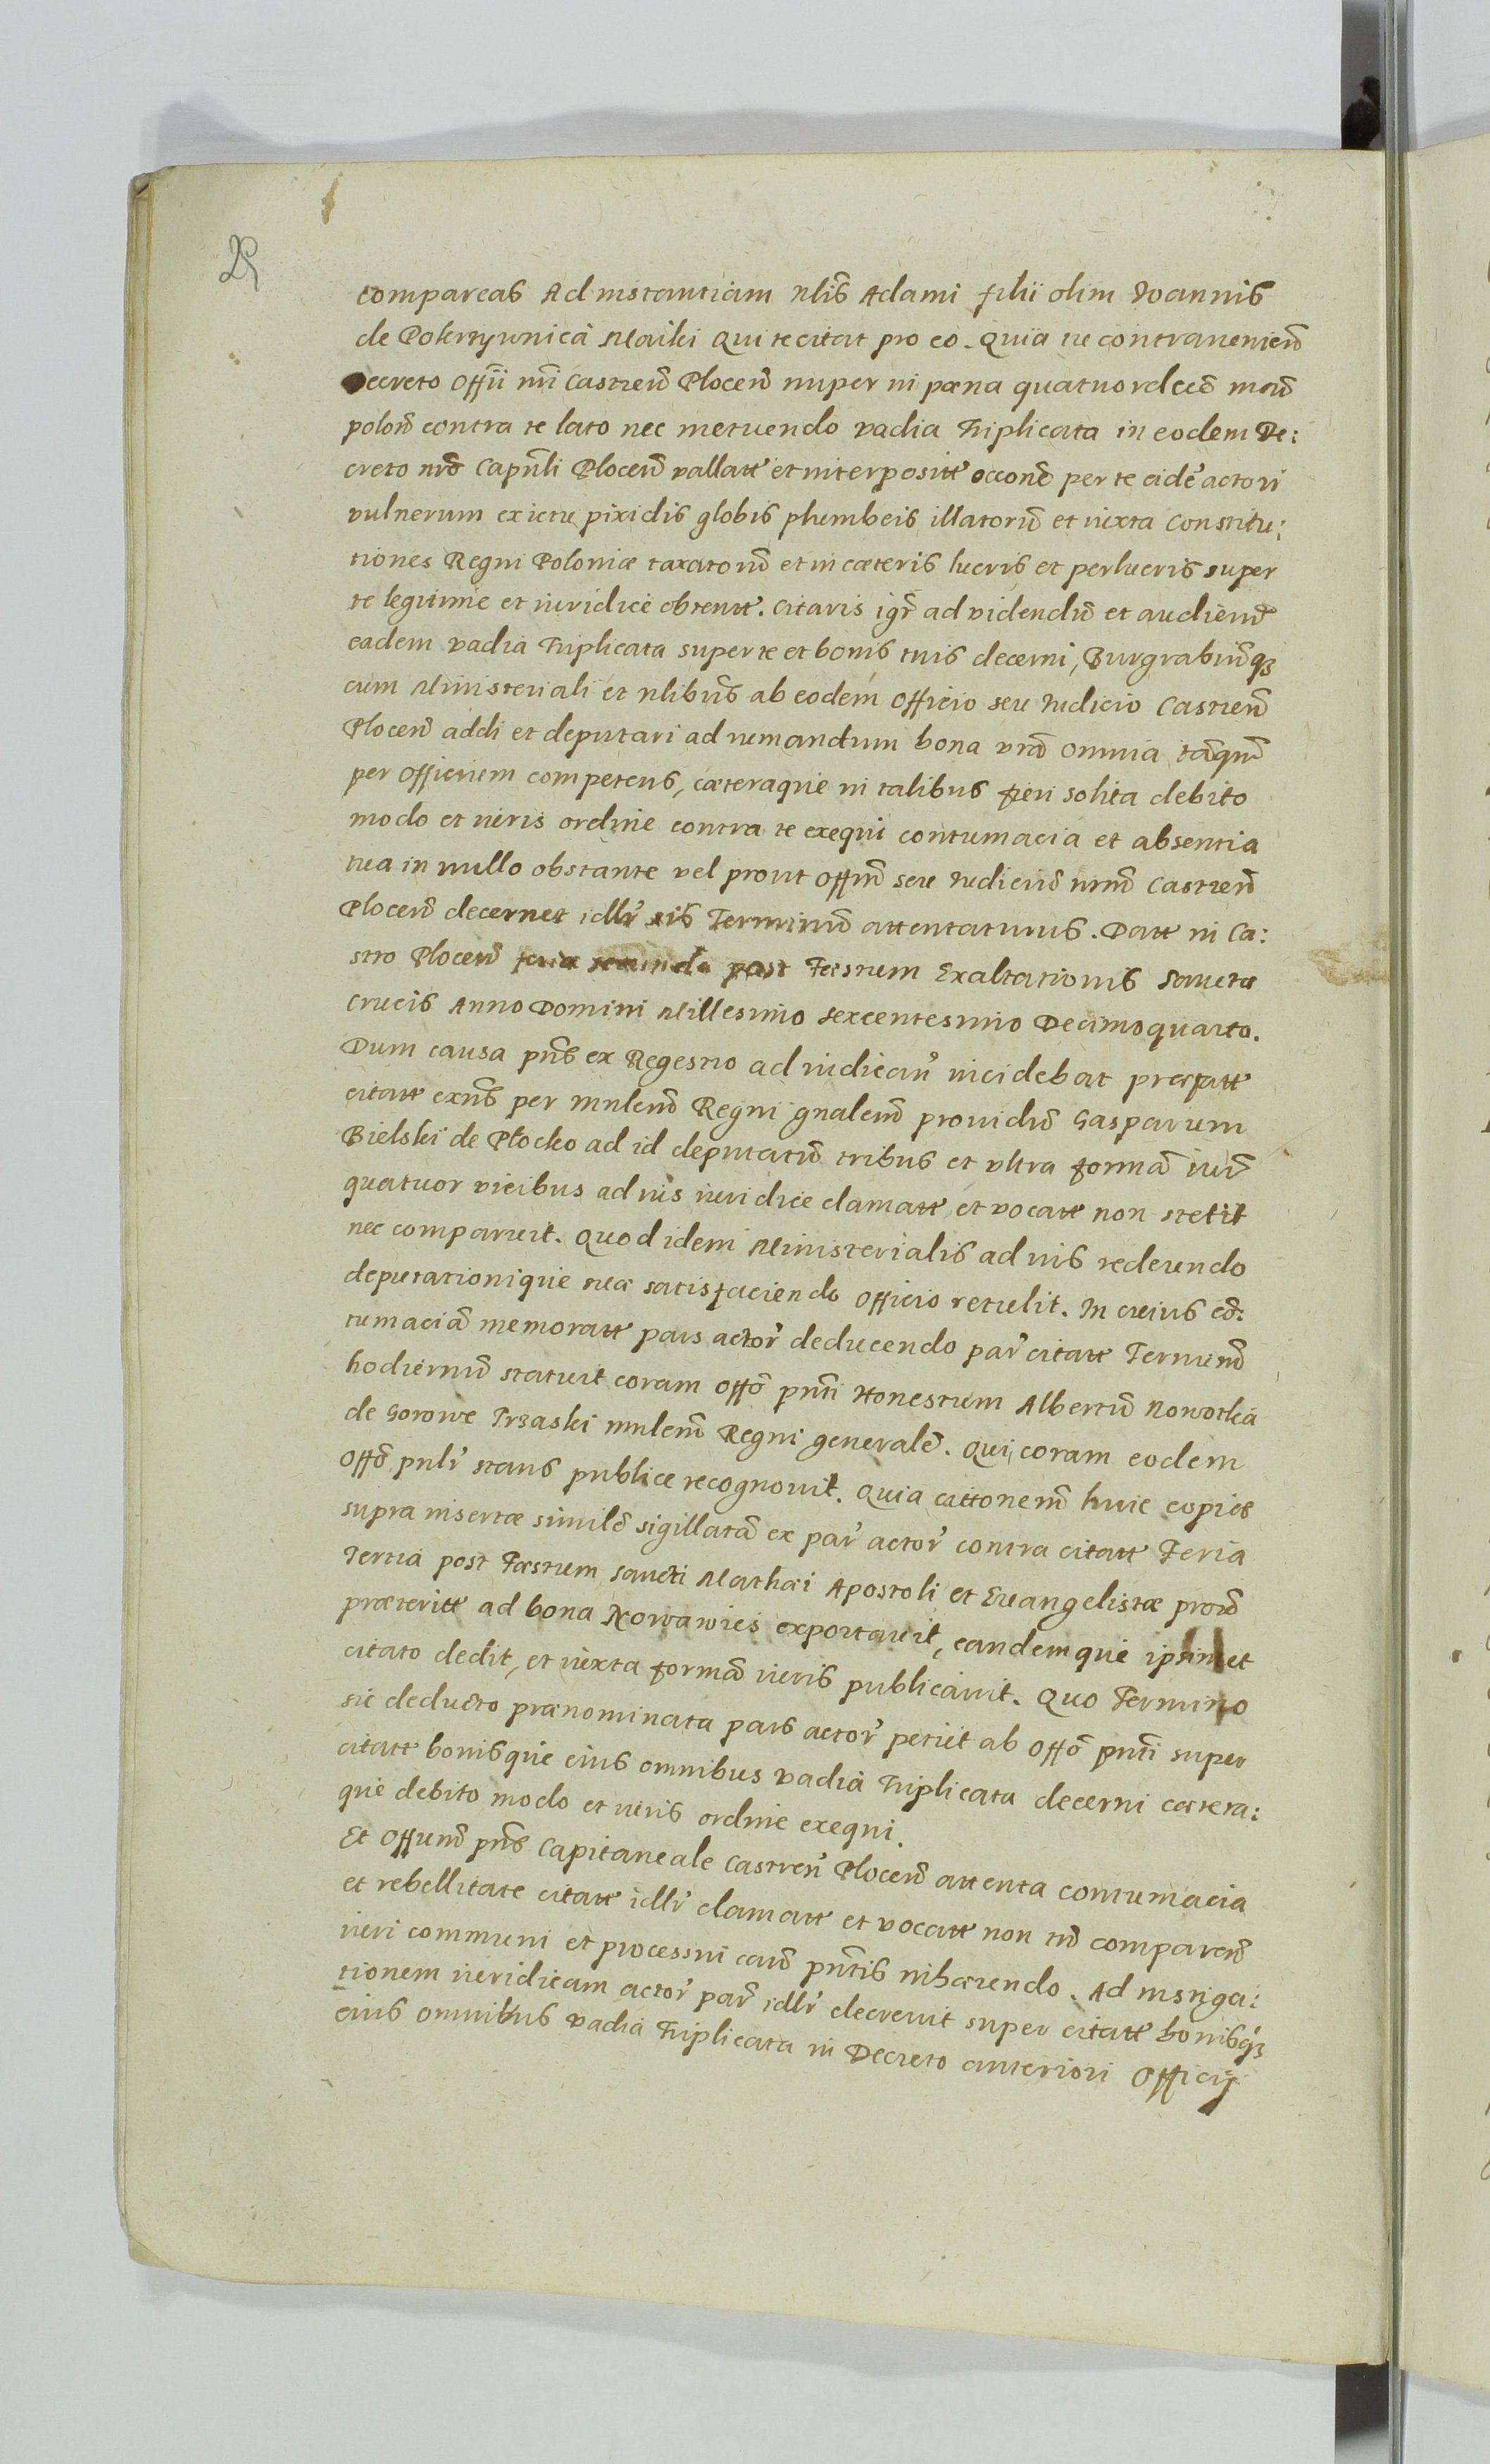 compareas Ad instantiam nlis Adami filii olim Ioannis
de Pokrzywnica Maiki Qui te citat pro eo. Quia tu contraueniend
Decreto Offii nri Castren Plocen nuper in pœna quatuordecē mar
polon contra te lato nec metuendo vadia Triplicata in eodem De:
creto nro Capnli Plocen vallatt et interpositt occone per te eidē actori
vulnerum ex ictu pixidis globis plumbeis illatorū et iuxta Constitu:
tiones Regni Poloniæ taxatorū et in cæteris lucris et perlucris super
te legitime et iuridicè obtentt. Citaris igr ad videndū et audiend
eadem vadia Triplicata super te et bonis tuis decerni, Burgrabiūq3
cum Ministeriali et nlibus ab eodem Officio seu Iudicio Castren
Plocen addi et deputari ad iumandum bona vra omnia tāqm
per Officium competens, cæteraque in talibus fieri solita debito
modo et iuris ordine contra te exequi contumacia et absentia
tua in nullo obstante vel prout Offm seu Iudiciū nrm Castren
Plocen decernet idlr sis Terminū attentaturus. Datt in Ca:
stro Plocen feria secunda post Festum Exaltationis Sanctæ
Crucis Anno Domini Millesimo sexcentesimo Decimoquarto.
Dum causa pns ex Regestro ad iudican incidebat præfatt
citatt exns per mnlem Regni gnalem prouidū Gasparum
Bielski de Płocko ad id deputatū tribus et vltra formā iuris
quatuor vicibus ad ius iuridice clamatt et vocatt non stetit
nec comparuit. Quod idem Ministerialis ad nis redeundo
deputationique suæ satisfaciendo Officio retulit. In cuius cō:
tumaciā memoratt pars actor deducendo par citatt Terminū
hodiernū statuit coram Offo pnti Honestum Albertū Nowotka
de Gorowe Trzaski mnlem Regni generalē. Qui coram eodem
Offo pnlr stans publice recognouit. Quia cittonem huic copiæ
supra insertæ similē sigillatā ex par actor contra citatt Feria
Tertia post Fæstum Sancti Mathæi Apostoli et Euangelistæ proxi
præteritt ad bona Nowawies exportauit, eandemque ipsimet
citato dedit, et iuxta formā iuris publicauit. Quo Termino
sic deducto prænominata pars actor petiit ab Offo pnti super
citatt bonisque eius omnibus vadia Triplicata decerni cætera:
que debito modo et iuris ordine exequi.
Et Offium pns Capitaneale Castren Plocen attenta contumacia
et rebellitate citatt idlr clamatt et vocatt non tn comparen
iuri communi et processui caus pntis inhærendo. Ad instiga:
tionem iuridicam actor par idlr decreuit super citatt bonisq3
eius omnibus vadia Triplicata in Decreto anteriori Officij